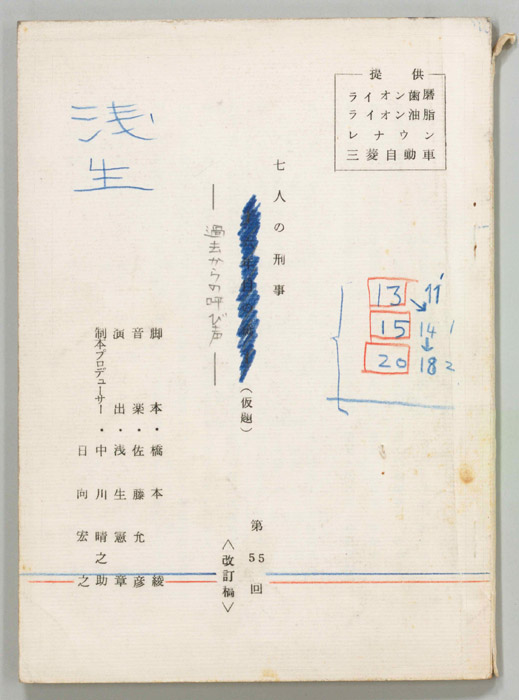 提供
ライオン歯磨
ライオン油脂
レナウン
三菱自動車
浅生
13 11
15 14 1
20 18 2
七人の刑事
(仮題)
過去からの呼び声
第55回
〈改訂稿〉
脚本・橋本綾
音楽・佐藤允彦
演出・浅生憲章
制本プロデューサー・中川晴之助
日向宏之